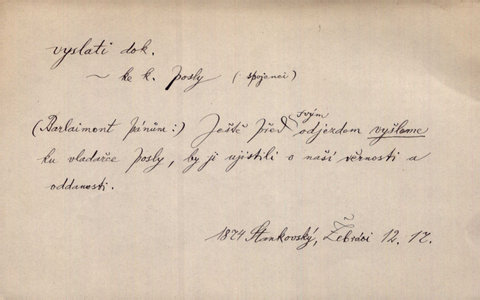 vyslati dok.
~ ke k. posly (spojenci)
(Barlaimont pánům:) Ještě před svým odjezdem vyšleme
ku vladařce posly, by ji ujistili o naší věrnosti a
oddanosti.
1874 Stankovský, Žebráci 12. 17.